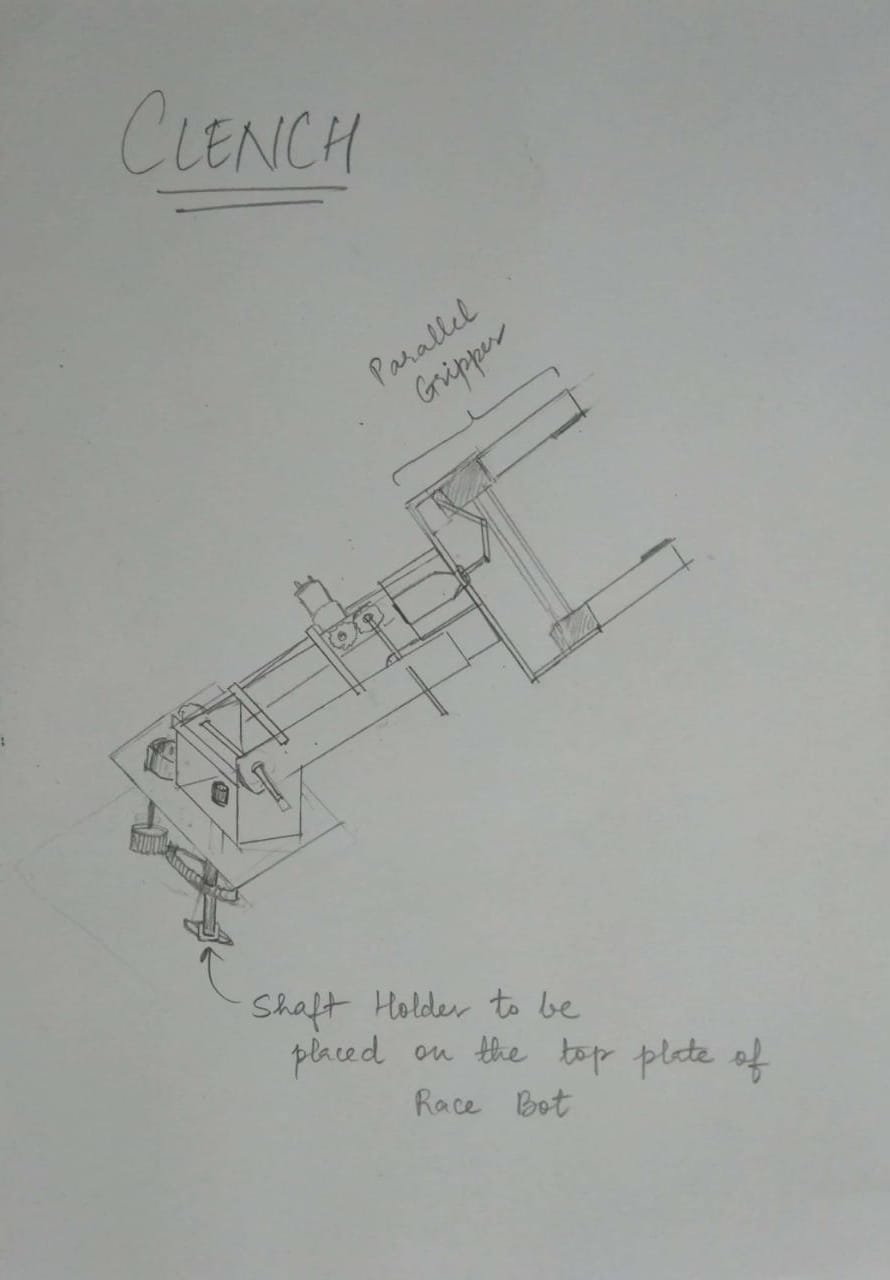 CLENCH
Parallel
Gripper
Shaft Holder to be
placed on the top plate of
Race Bot